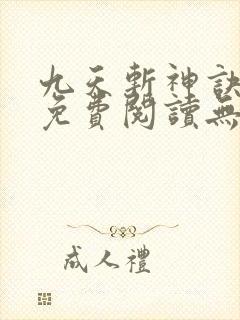 九天斬神訣
免費閱讀無
成人禮